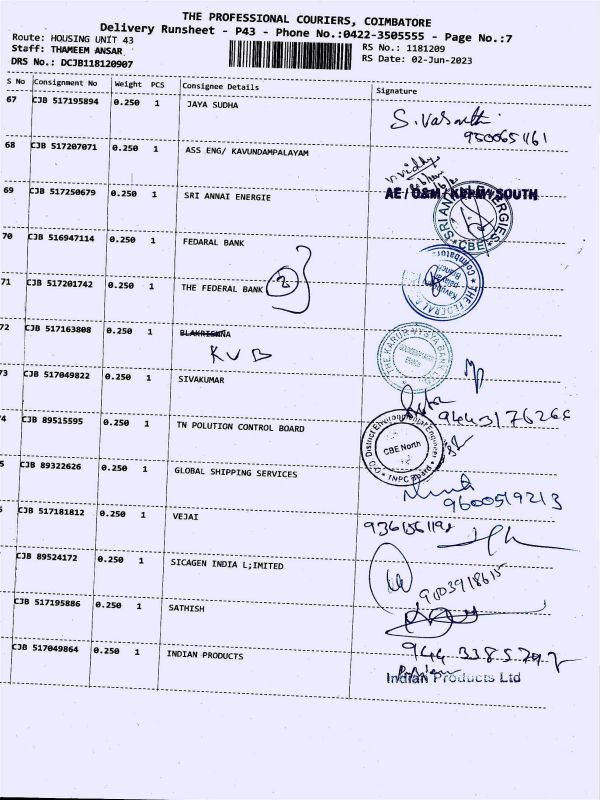 THE PROFESSIONAL COURIERS, COIMBATORE
Delivery Runsheet - P43 - Phone No.:0422-3505555 - Page No.:7
Route: HOUSING UNIT 43
Staff: THAMEEM ANSAR
DRS No.: DCJB118120907
RS No.: 1181209
RS Date: 02-Jun-2023
S No Consignment No Weight PCS Consignee Details Signature
67 CJB 517195894 0.250 1 JAYA SUDHA
S. Vasanthi
68 CJB 517207071 0.250 1 ASS ENG/ KAVUNDAMPALAYAM
AE / O&M / KBPM / SOUTH
69 CJB 517250679 0.250 1 SRI ANNAI ENERGIE
SRI ANNAI ENERGIES
CBE
70 CJB 516947114 0.250 1 FEDARAL BANK
71 CJB 517201742 0.250 1 THE FEDERAL BANK 2
THE FEDERAL
Coimbatore
72 CJB 517163808 0.250 1 BLAKRISHNA
KVB
THE KARUR VYSYA BANK
73 CJB 517049822 0.250 1 SIVAKUMAR
4 CJB 89515595 0.250 1 TN POLUTION CONTROL BOARD
O/O District Environmental Engineer
CBE North
TNPC Board
5 CJB 89322626 0.250 1 GLOBAL SHIPPING SERVICES
9600519213
CJB 517181812 0.250 1 VEJAI
CJB 89524172 0.250 1 SICAGEN INDIA L;IMITED
CJB 517195886 0.250 1 SATHISH
CJB 517049864 0.250 1 INDIAN PRODUCTS
Indian Products Ltd